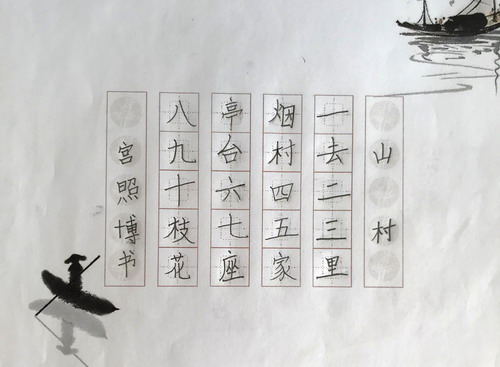 山村
一去二三里
烟村四五家
亭台六七座
八九十枝花
宫照博书